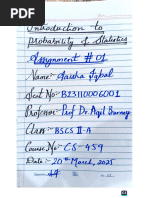 Introduction to
probability & Statistics
Assignment # 01
Name:- Iqbal
Seat No:- B23110006001
Professor:- Prof Dr Aqil Burney
Class:- BSCS II-A
Course No:- CS-459
Date:- 20th March, 2025